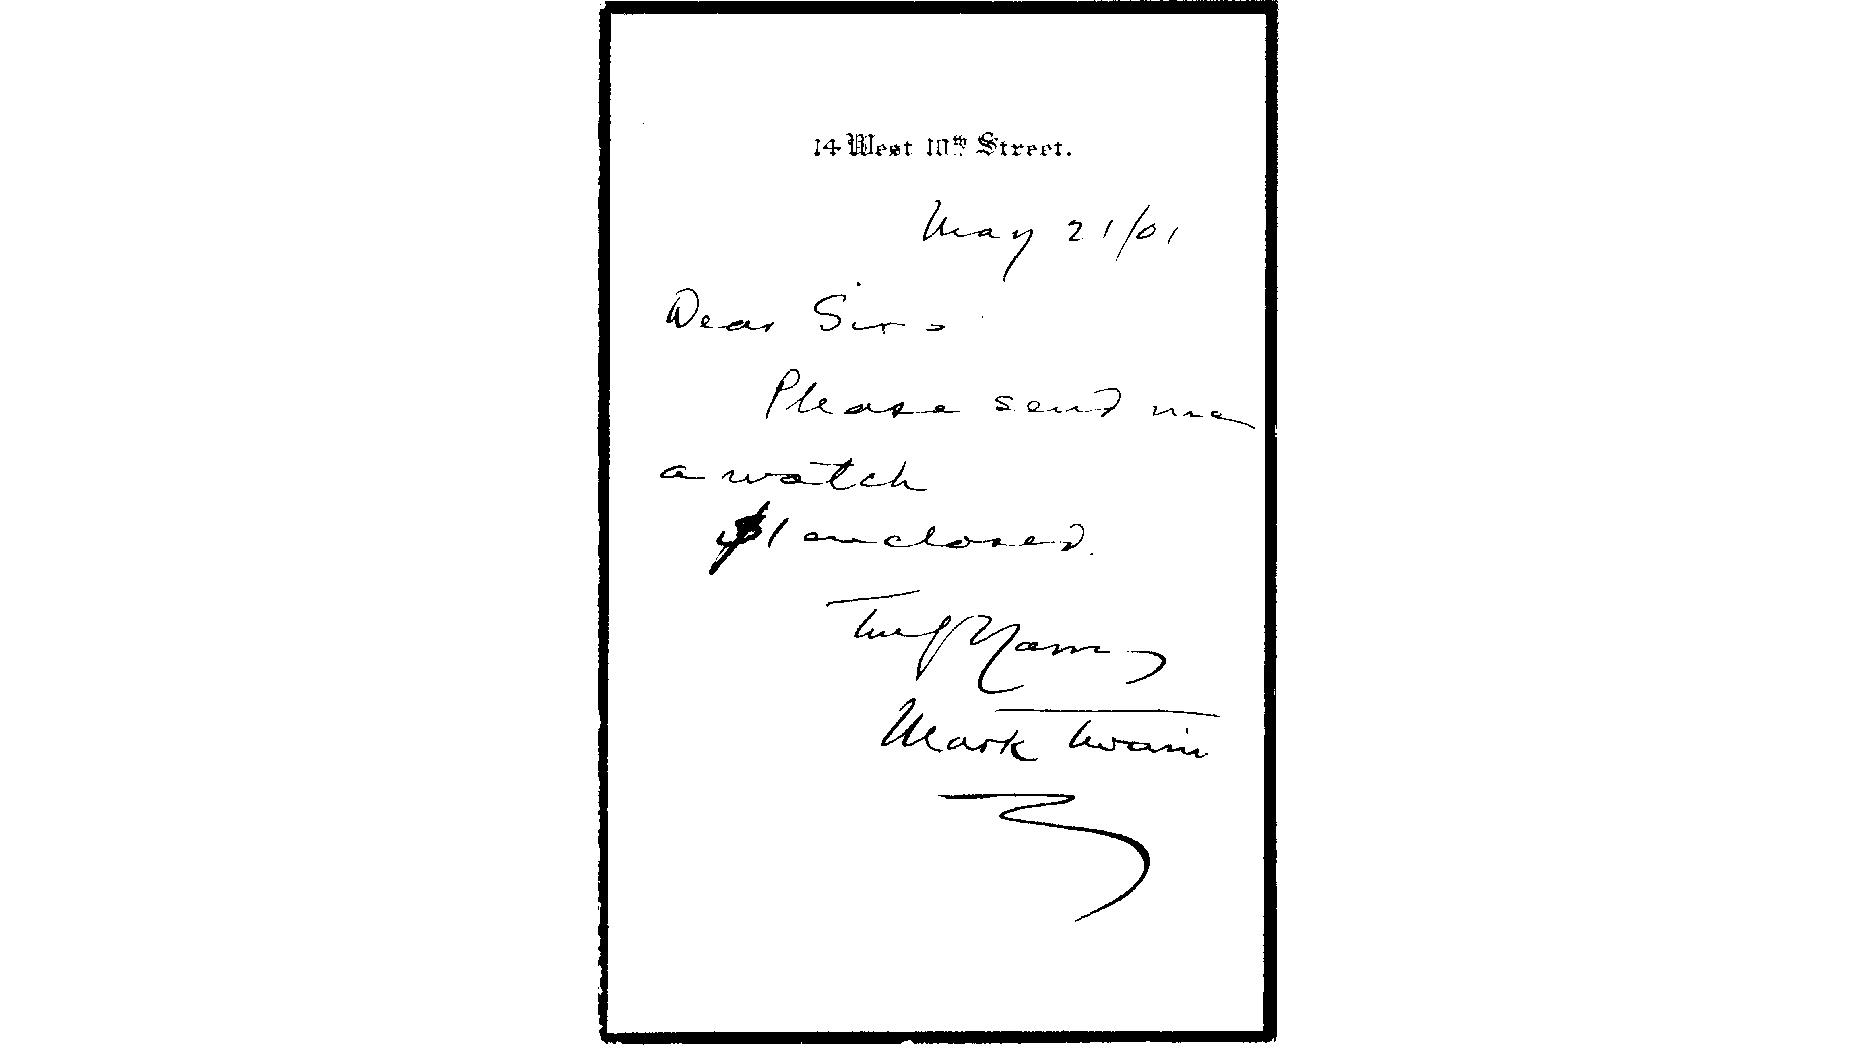 14 West 10th Street.
May 21/01
Dear Sir =
Please send me
a watch
$1 enclosed.
Truly Yours
Mark Twain